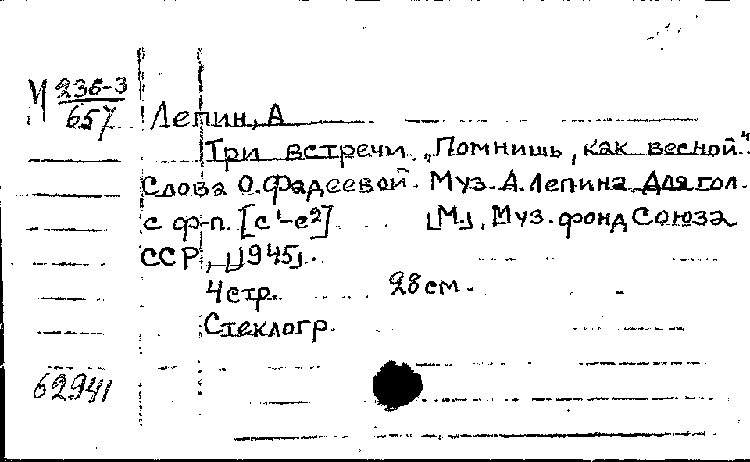 М 236-3
657
Лепин, А
Три встречи. „Помнишь, как весной".
Слова О. Фадеевой. Муз. А. Лепина. Для гол.
с ф-п. [c¹-e²] [М], Муз. фонд Союза
ССР, [1945].
4 стр. 28 см.
Стеклогр.
62941